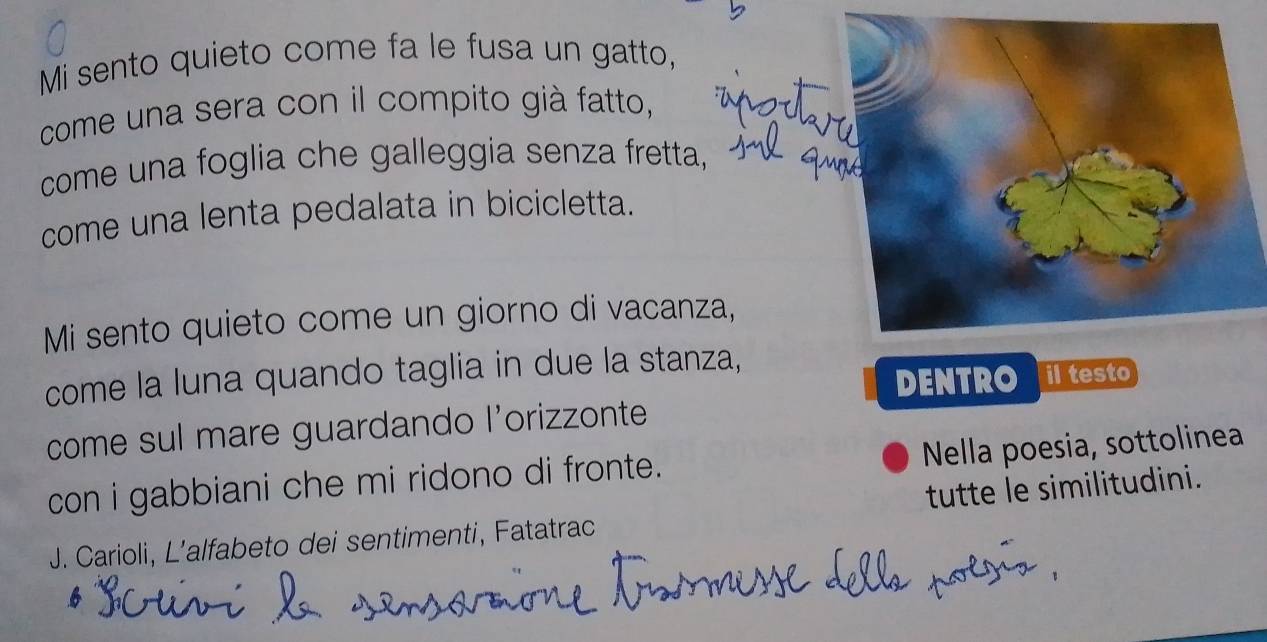 b
Mi sento quieto come fa le fusa un gatto,
come una sera con il compito già fatto,
come una foglia che galleggia senza fretta,
come una lenta pedalata in bicicletta.
Mi sento quieto come un giorno di vacanza,
come la luna quando taglia in due la stanza,
come sul mare guardando l'orizzonte
con i gabbiani che mi ridono di fronte.
J. Carioli, L'alfabeto dei sentimenti, Fatatrac
sul quad
DENTRO il testo
Nella poesia, sottolinea
tutte le similitudini.
Scrivi la sensazione trasmesse della poesia.